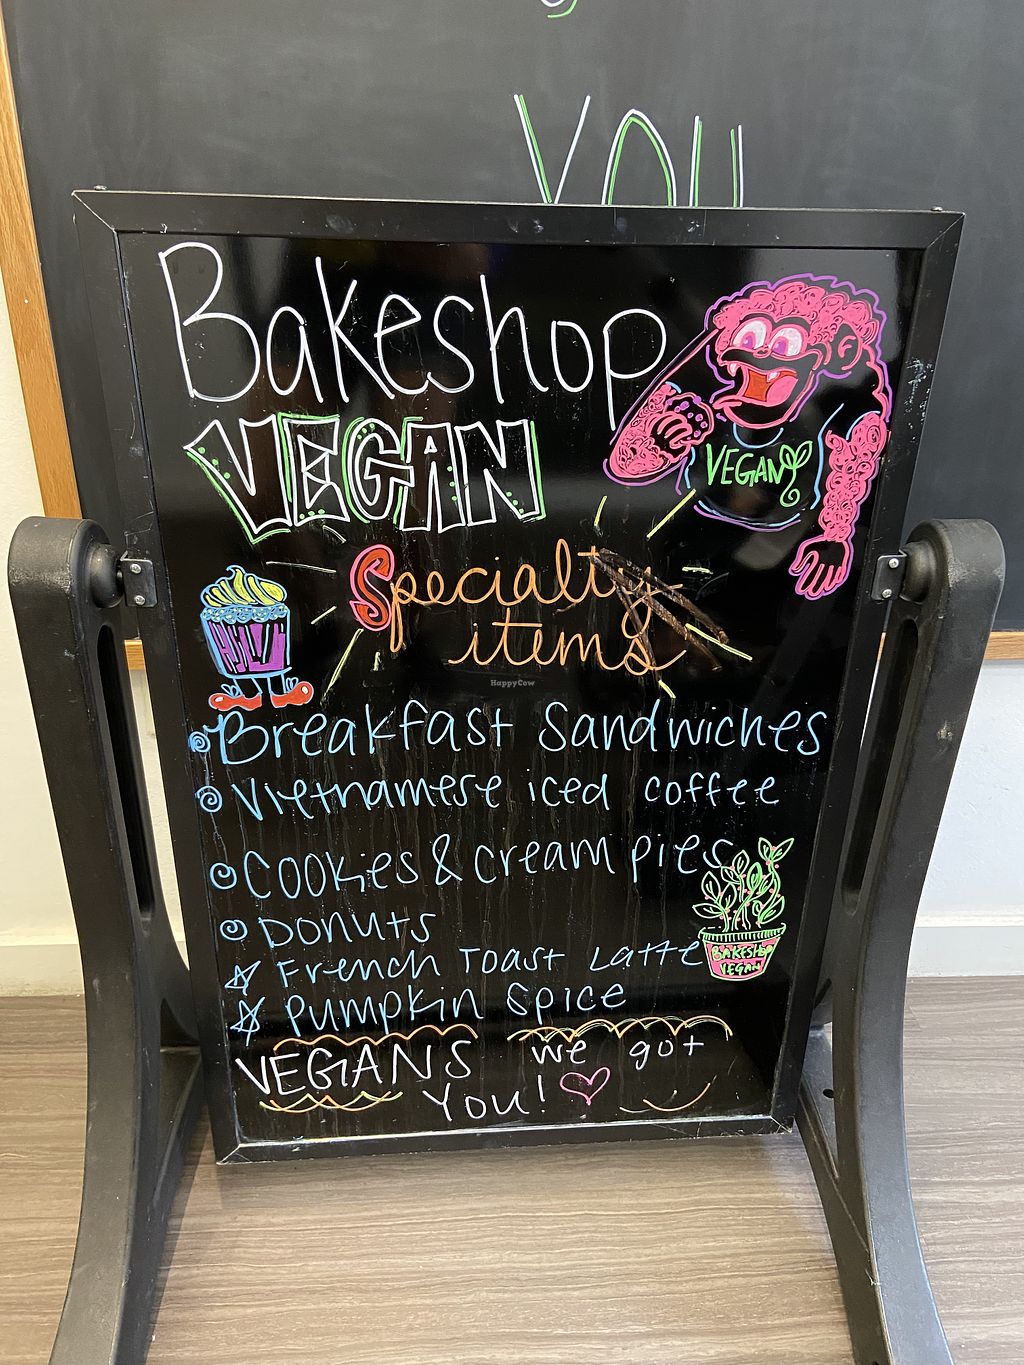 YOU
Bakeshop
VEGAN
VEGAN
Specialty
items
HappyCow
Breakfast Sandwiches
Vietnamese iced coffee
Cookies & cream pies
Donuts
French Toast Latte
Pumpkin Spice
BAKESHOP
VEGAN
VEGANS we got
You!